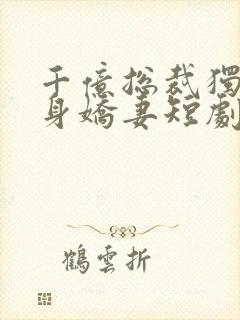 千億總裁獨
身嬌妻短劇
鶴雲折